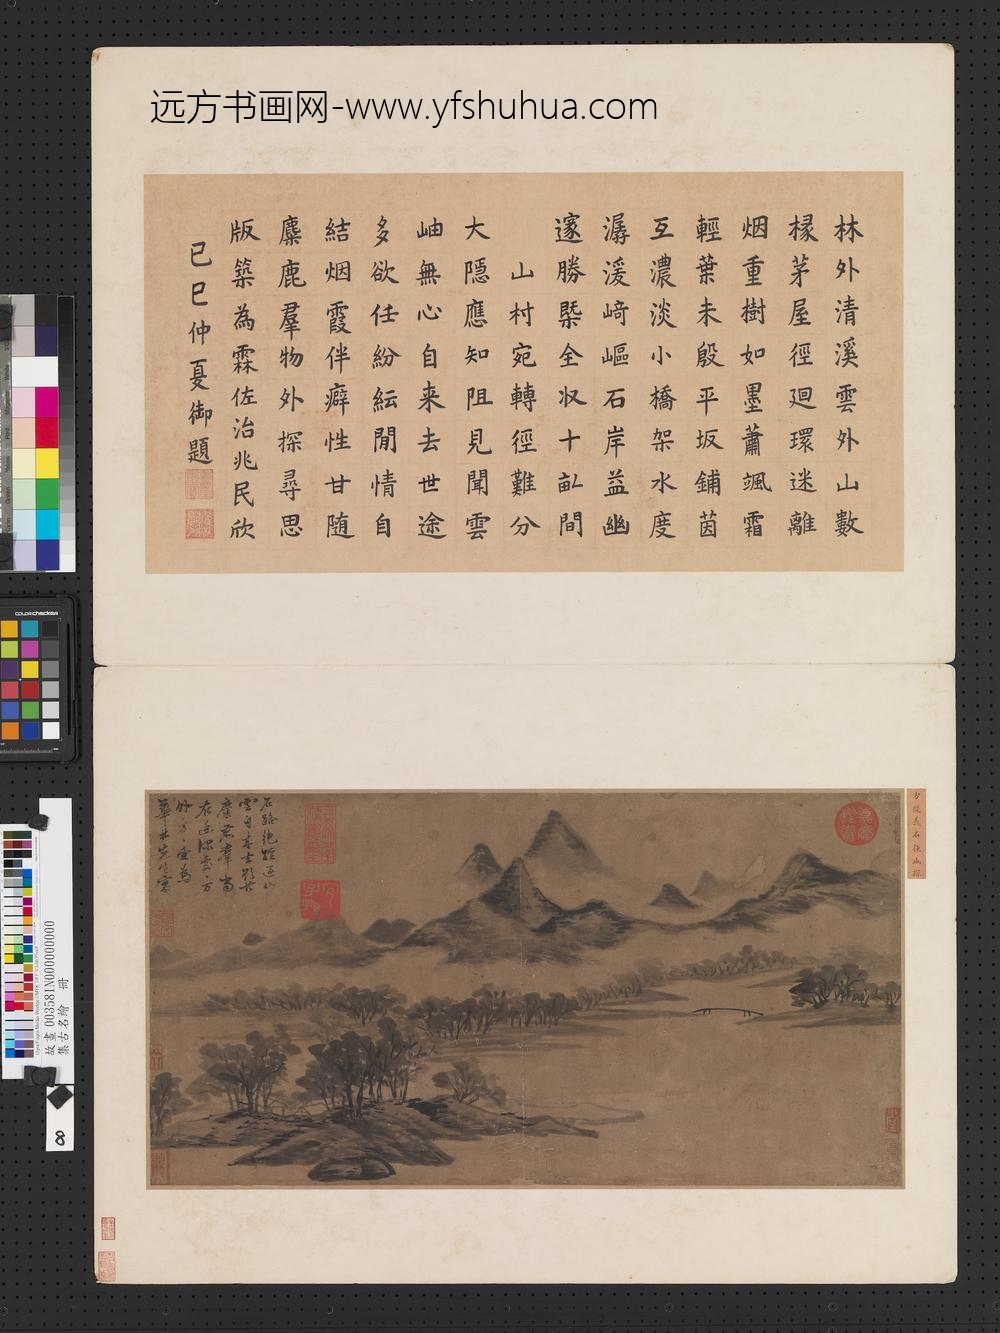 远方书画网-www.yfshuhua.com
林外清溪雲外山數
椽茅屋徑迴環迷離
烟重樹如墨蕭颯霜
輕葉未殷平坂鋪茵
互濃淡小橋架水度
潺湲崎嶇石岸益幽
邃勝槩全収十畝間
山村宛轉徑難分
大隱應知阻見聞雲
岫無心自来去世途
多欲任紛紜閒情自
結烟霞伴癖性甘随
麋鹿羣物外探尋思
版築為霖佐治兆民欣
己巳仲夏御題
方從義石徑幽探
石路
雲自
麋鹿羣
在
外方壺為
華林
COLORchecker
故畫003581N000000000
集古名繪 冊
8